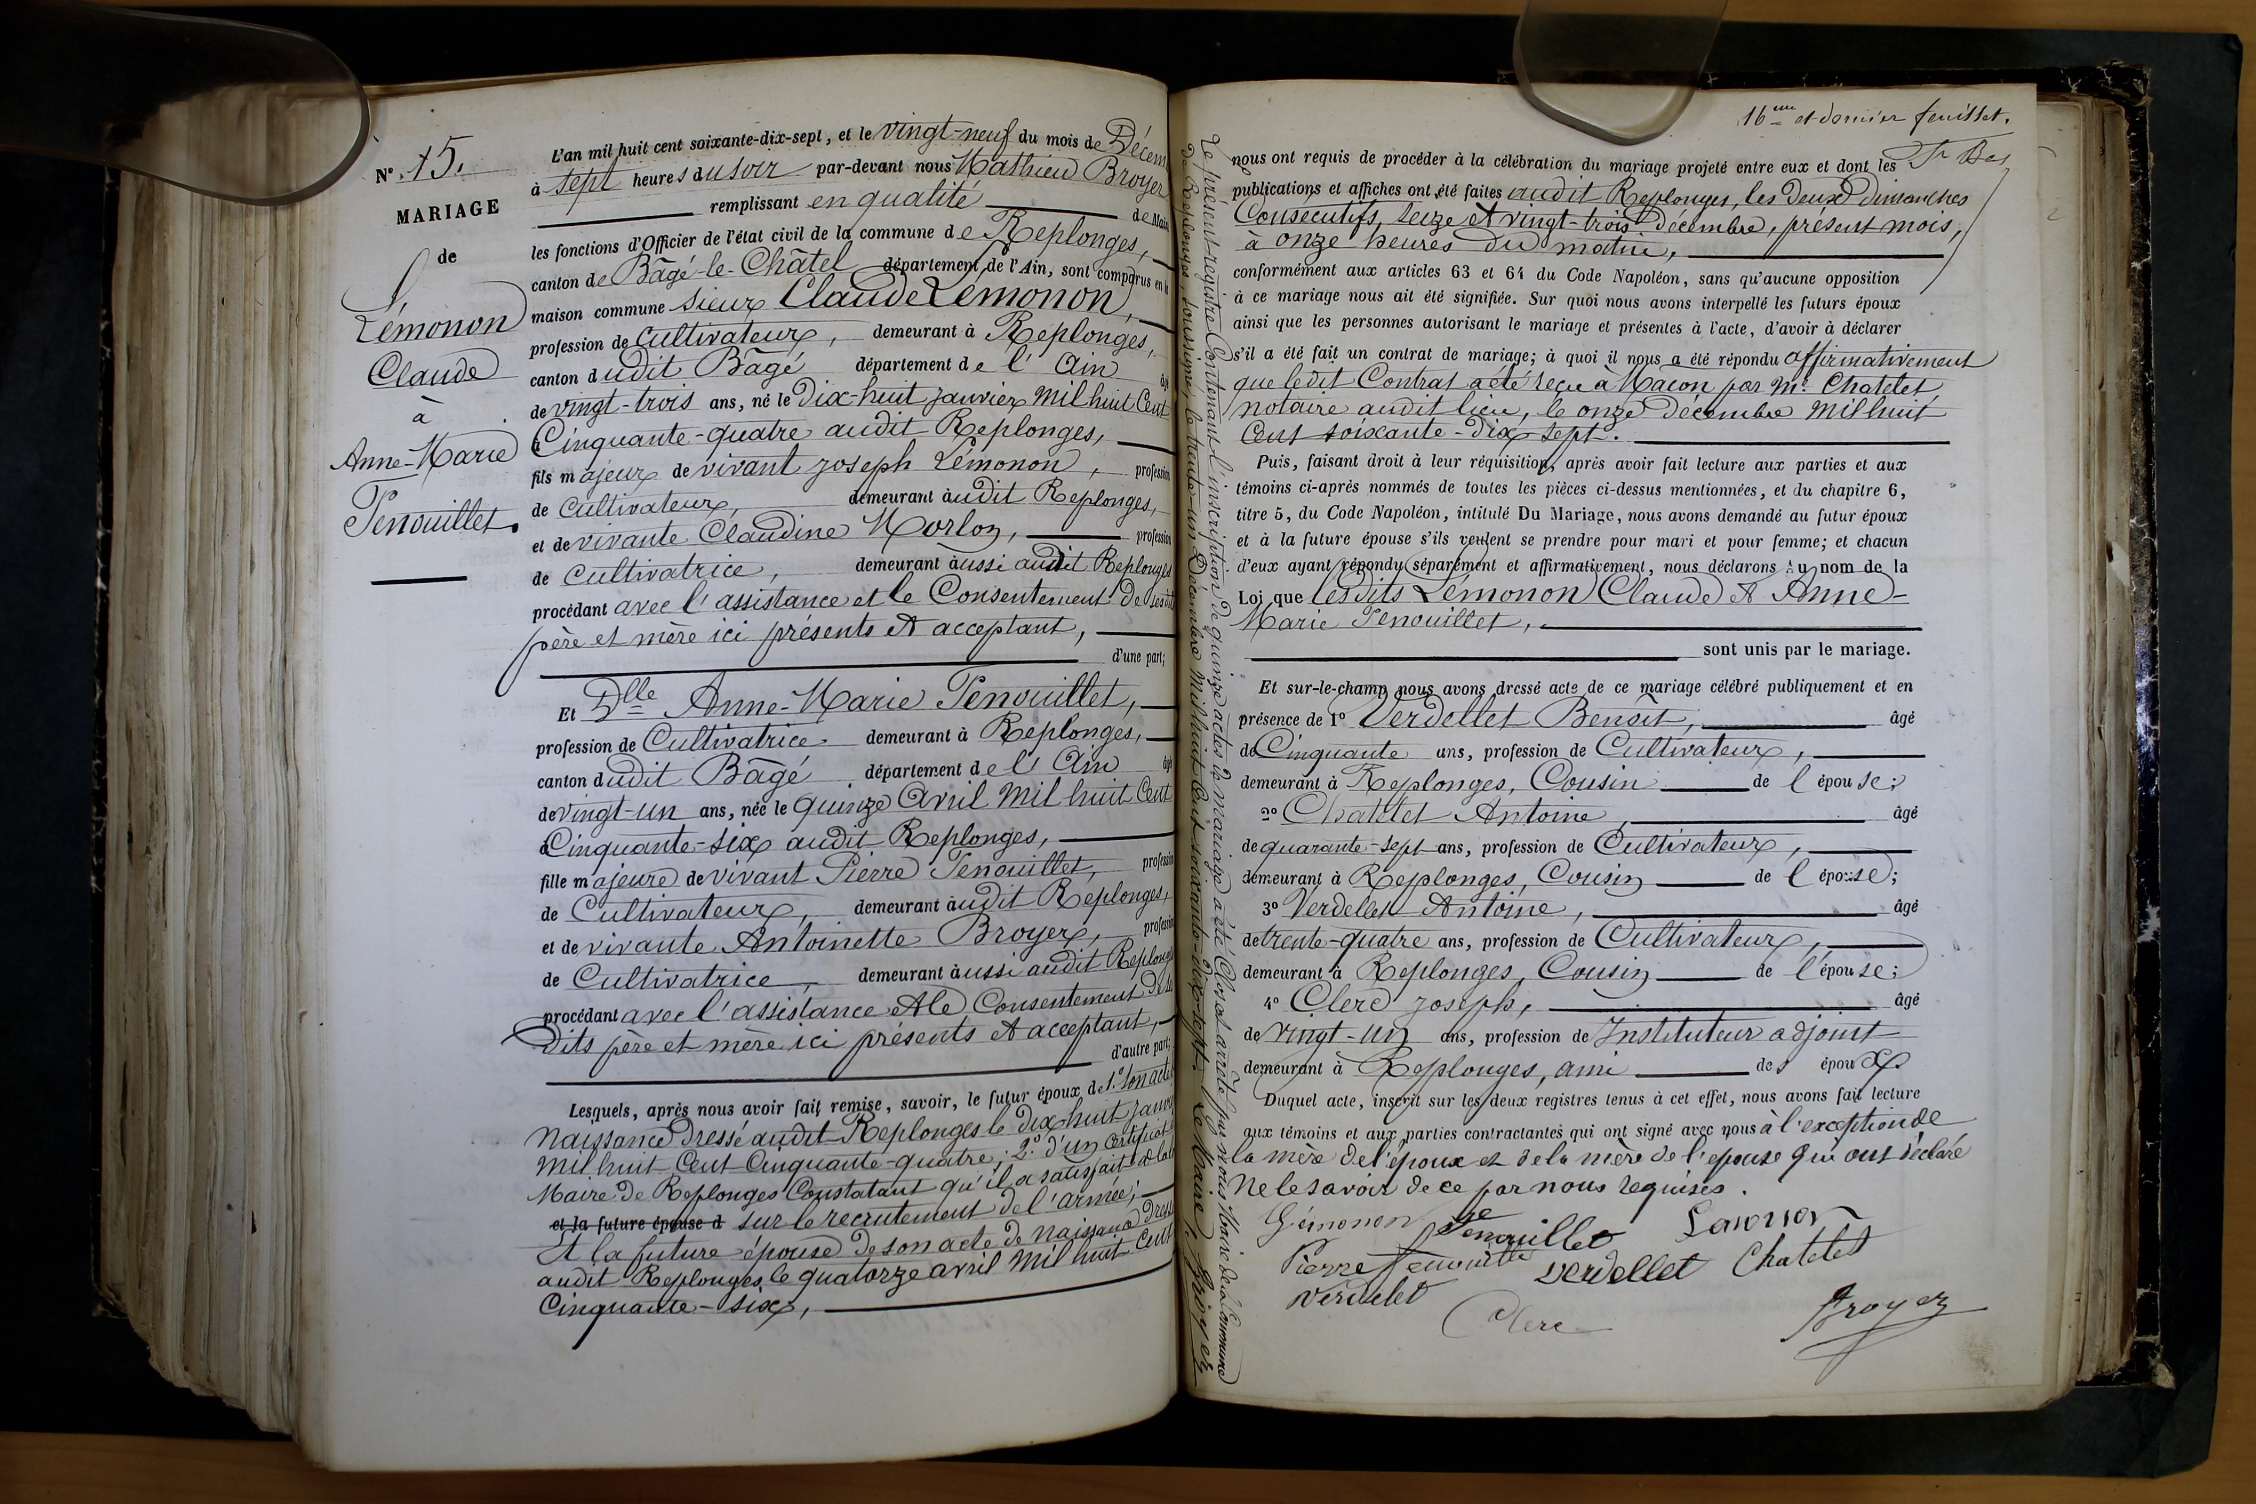 N° 15.
MARIAGE
de
Lémonon
Claude
à
Anne-Marie
Penouillet.
L'an mil huit cent soixante-dix-sept, et le vingt-neuf du mois de Décem
à sept heures du soir par-devant nous Mathieu Broyer
remplissant en qualité de Maire
les fonctions d'Officier de l'état civil de la commune de Replonges,
canton de Bâgé-le-Châtel département de l'Ain, sont comparus en la
maison commune sieur Claude Lémonon,
profession de Cultivateur, demeurant à Replonges,
canton dudit Bâgé département de l'Ain âgé
de vingt-trois ans, né le dix-huit janvier mil huit Cent
Cinquante-quatre audit Replonges,
fils majeur de vivant Joseph Lémonon, profession
de Cultivateur, demeurant audit Replonges,
et de vivante Claudine Morlon, profession
de Cultivatrice, demeurant aussi audit Replonges
procédant avec l'assistance et le Consentement de sesdits
père et mère ici présents et acceptant,
d'une part;
Et Dlle Anne-Marie Penouillet,
profession de Cultivatrice demeurant à Replonges,
canton dudit Bâgé département de l'Ain âgé
de vingt-un ans, née le quinze Avril mil huit Cent
Cinquante-six audit Replonges,
fille majeure de vivant Pierre Penouillet, profession
de Cultivateur, demeurant audit Replonges,
et de vivante Antoinette Broyer, profession
de Cultivatrice, demeurant aussi audit Replonges
procédant avec l'assistance et le Consentement de ses
dits père et mère ici présents et acceptant,
d'autre part;
Lesquels, après nous avoir fait remise, savoir, le futur époux de 1° son acte
Naissance dressé audit Replonges le dix-huit janv
mil huit Cent Cinquante-quatre; 2° d'un certificat
Maire de Replonges Constatant qu'il a satisfait à la loi
et la future épouse d sur le recrutement de l'armée;
Et la future épouse de son acte de naissance dress
audit Replonges le quatorze avril mil huit Cent
Cinquante-six,
16eme et dernier feuillet.
nous ont requis de procéder à la célébration du mariage projeté entre eux et dont les
publications et affiches ont été faites audit Replonges, les deux dimanches
Consécutifs, seize et vingt-trois décembre, présent mois,
à onze heures du matin,
conformément aux articles 63 et 64 du Code Napoléon, sans qu'aucune opposition
à ce mariage nous ait été signifiée. Sur quoi nous avons interpellé les futurs époux
ainsi que les personnes autorisant le mariage et présentes à l'acte, d'avoir à déclarer
s'il a été fait un contrat de mariage; à quoi il nous a été répondu affirmativement
que ledit Contrat a été reçu à Macon par Me Chatelet,
notaire audit lieu, le onze décembre mil huit
Cent soixante-dix-sept.
Puis, faisant droit à leur réquisition, après avoir fait lecture aux parties et aux
témoins ci-après nommés de toutes les pièces ci-dessus mentionnées, et du chapitre 6,
titre 5, du Code Napoléon, intitulé Du Mariage, nous avons demandé au futur époux
et à la future épouse s'ils veulent se prendre pour mari et pour femme; et chacun
d'eux ayant répondu séparément et affirmativement, nous déclarons au nom de la
Loi que lesdits Lémonon Claude et Anne-
Marie Penouillet,
sont unis par le mariage.
Et sur-le-champ nous avons dressé acte de ce mariage célébré publiquement et en
présence de 1° Verdellet Benoît, âgé
de Cinquante ans, profession de Cultivateur,
demeurant à Replonges, Cousin de l'épouse;
2° Chatelet Antoine, âgé
de quarante-sept ans, profession de Cultivateur,
demeurant à Replonges, Cousin de l'épouse;
3° Verdellet Antoine, âgé
de trente-quatre ans, profession de Cultivateur,
demeurant à Replonges, Cousin de l'épouse;
4° Clerc Joseph, âgé
de vingt-un ans, profession de Instituteur adjoint
demeurant à Replonges, ami des époux.
Duquel acte, inscrit sur les deux registres tenus à cet effet, nous avons fait lecture
aux témoins et aux parties contractantes qui ont signé avec nous à l'exception de
la mère de l'époux et de la mère de l'épouse qui ont déclaré
ne le savoir de ce par nous requises.
Lémonon Penouillet Lémonon
Pierre Penouillet Verdellet Chatelet
Verdelet
Clerc Broyer
Le présent registre Contenant l'inscription de quinze actes de mariage a été Clos et arrêté par nous Maire de la Commune
de Replonges, soussigné, le trente-un Décembre mil huit Cent soixante-dix-sept. Le Maire, Broyer